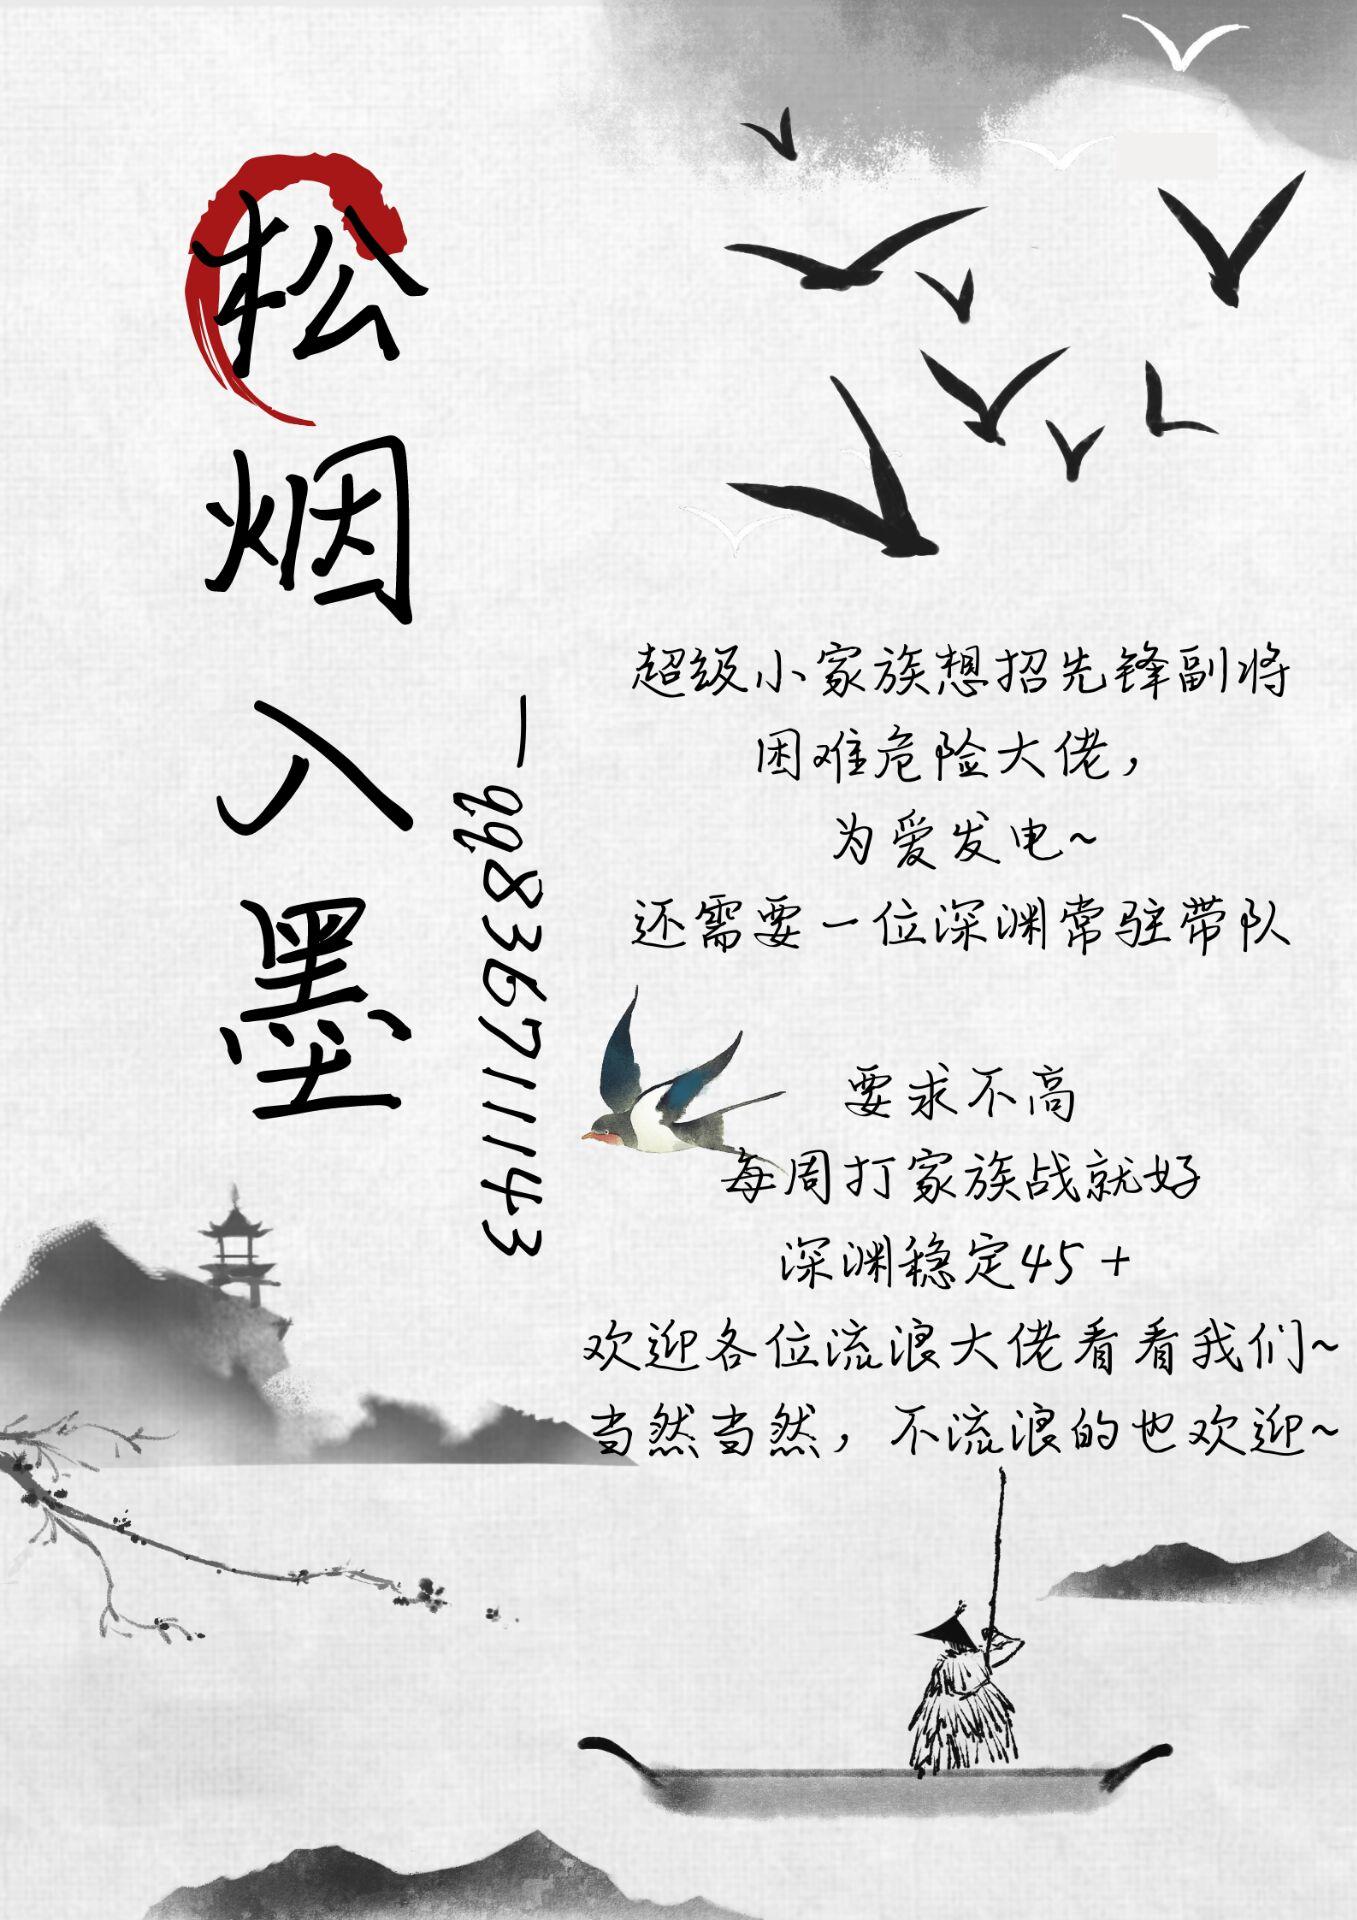 松烟入墨
—qq836711143
超级小家族想招先锋副将
困难危险大佬，
为爱发电~
还需要一位深渊常驻带队
要求不高
每周打家族战就好
深渊稳定45+
欢迎各位流浪大佬看看我们~
当然当然，不流浪的也欢迎~